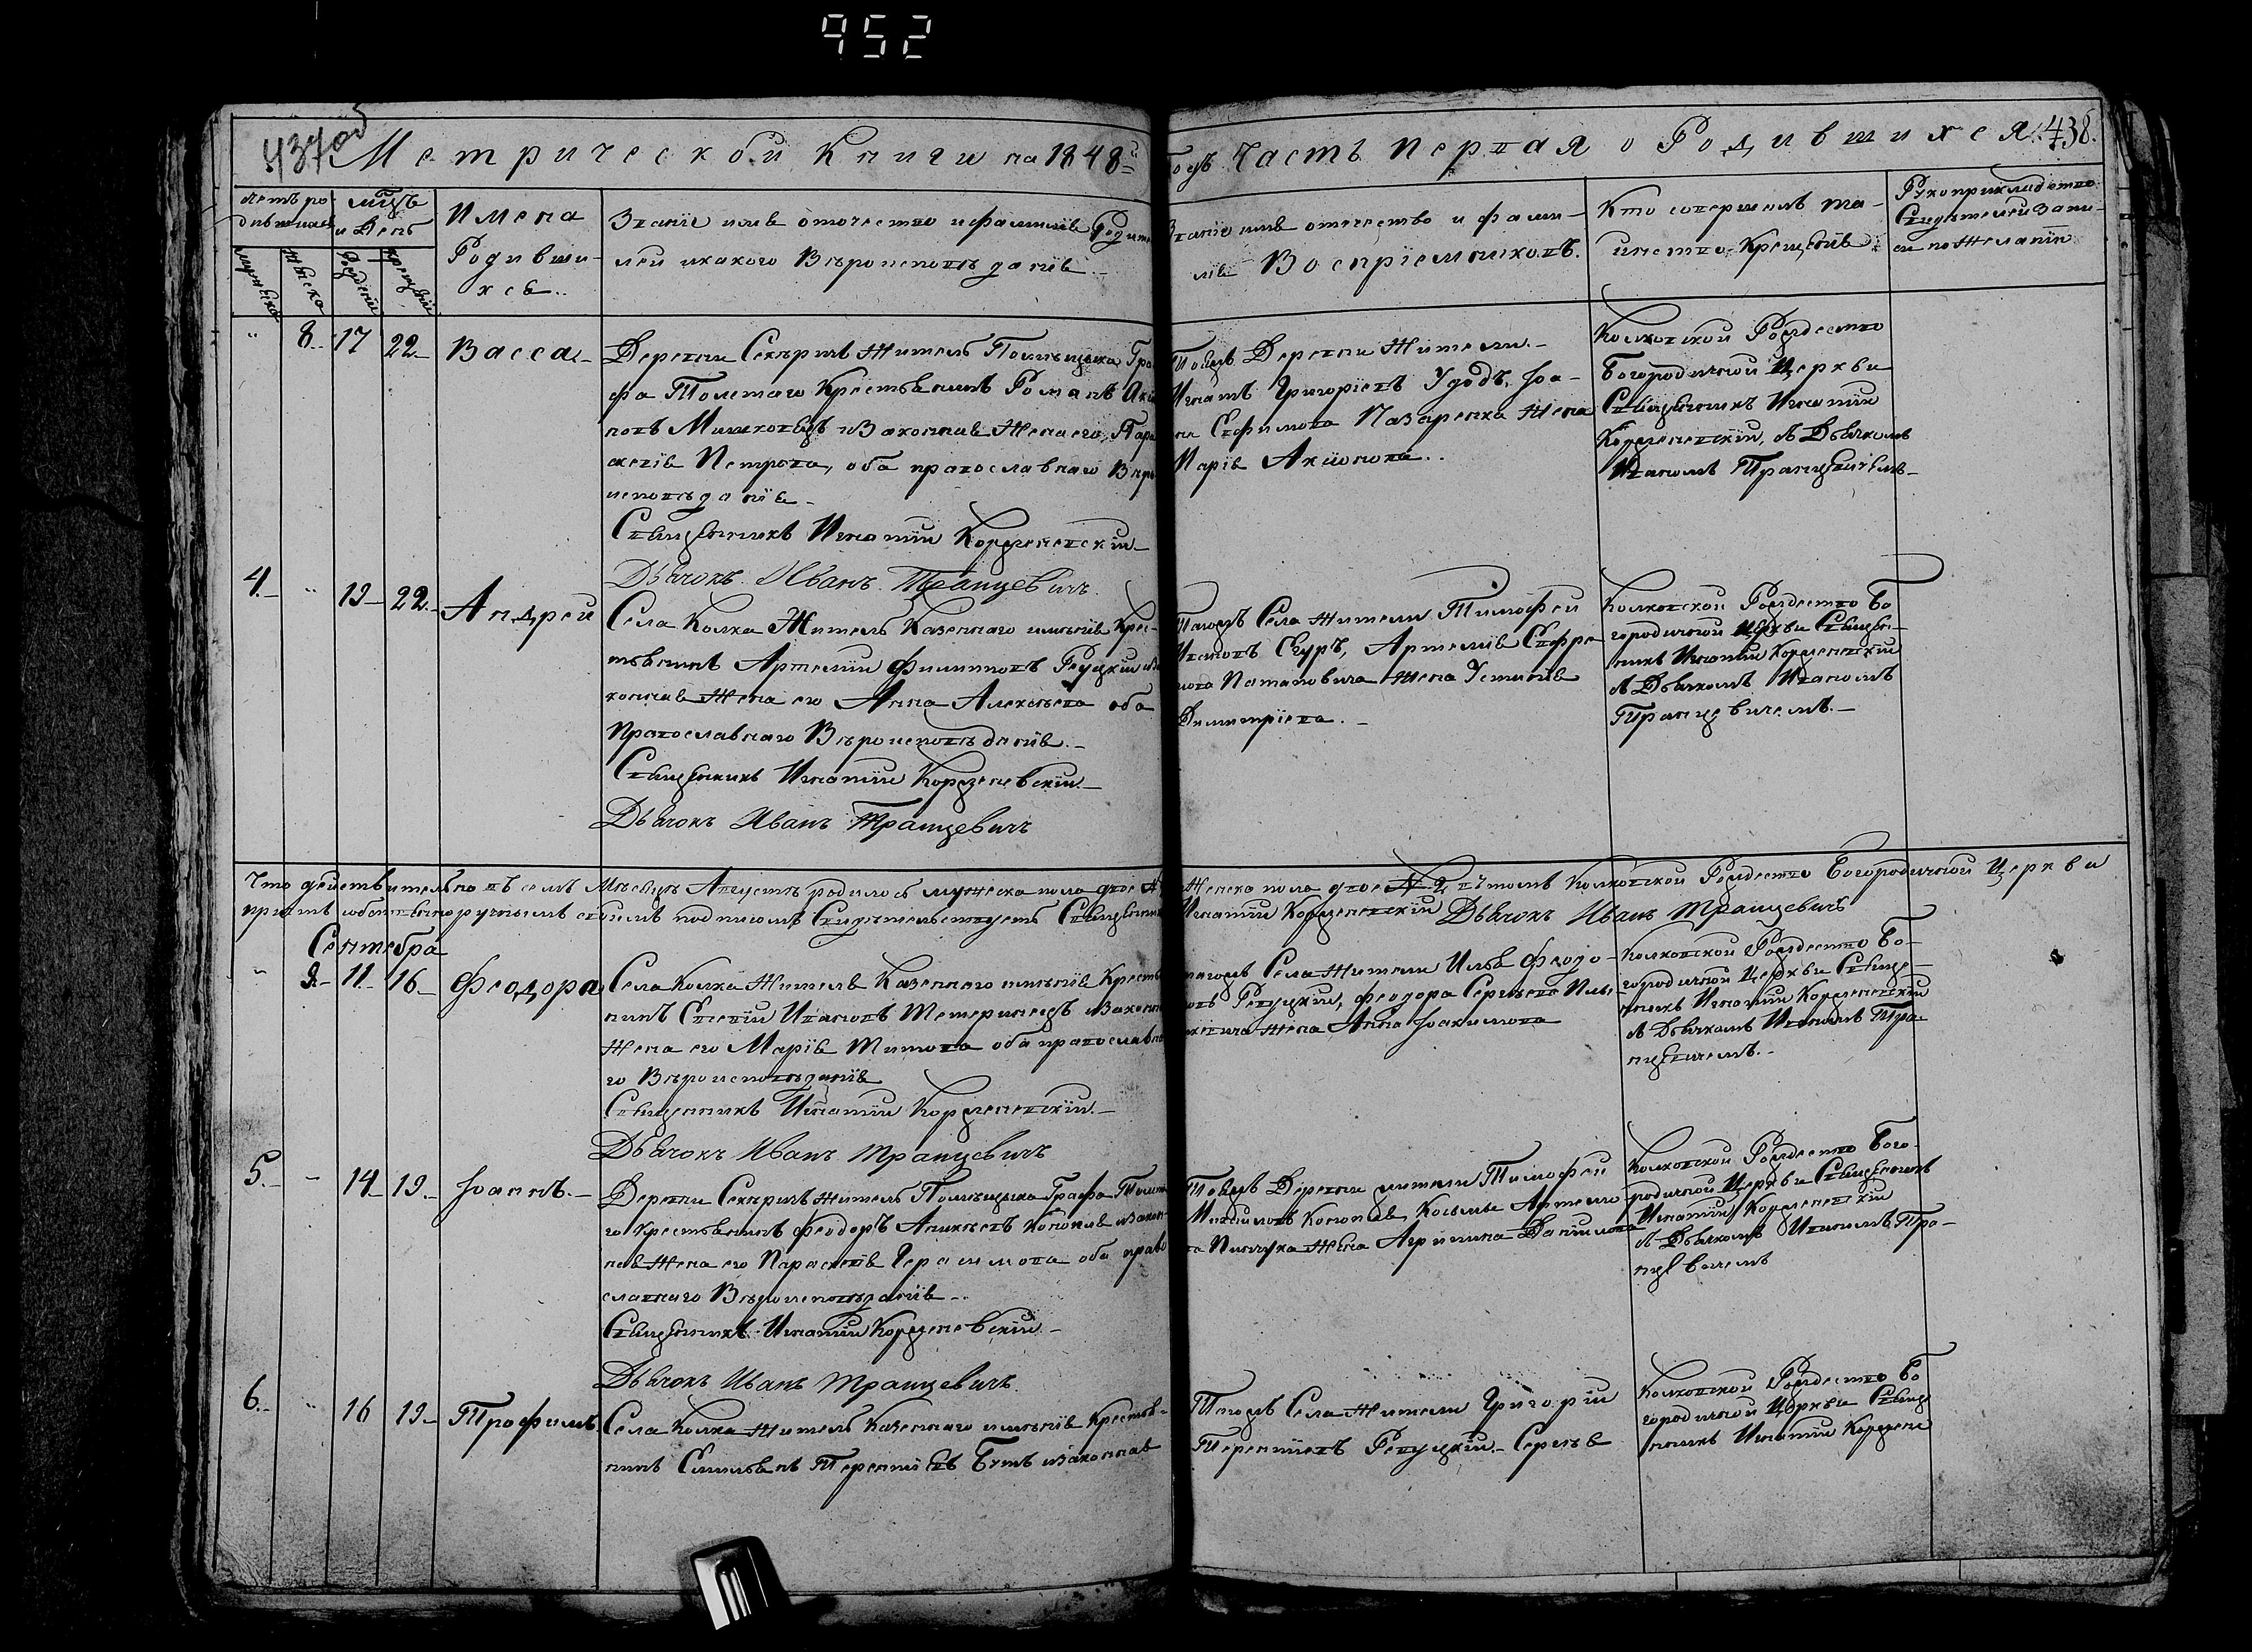 952
437об
Метрической Книги на 1848й
Годъ Часть Первая о Родившихся.
438.
Счетъ родившихся
Мѣсяцъ и День
Мужеска
Женска
Рожденія
Крещенія
Имена
Родивши-
хся..
Званіе имя отечество и фамилія Родите
лей и какого Вѣроисповѣданія
Званіе имя отечество и фами-
лія Воспріемниковъ.
Кто совершилъ та-
инство Крещенія
Рукоприкладство
Свидѣтелей запи-
си по Желанію
" 8. 17 22 Васса
Деревни Секѣричъ Житель Помѣщика Гра
фа Толстаго Крестьянинъ Романъ
новъ и Законная Жена его Пара
скевія Петрова, оба православнаго Вѣро
исповѣданія
Священникъ Игнатій Корженевскій
Дьячокъ Иванъ Транцевичъ
Тоейжъ Деревни Жители
Игнатъ Григоріевъ Удодъ, Іоа-
на Ефимова Назаренка Жена
Марія
Колковской Рождество
Богородичной Церкви
Священникъ Игнатій
Корженевскій, съ Дьячкомъ
Иваномъ Транцевичемъ
4. " 19 22 Андрей
Села Колка Житель Казеннаго имѣнія Крес-
тьянинъ Артемій Филиповъ Реуцкій и За
конная Жена его Анна Алексѣева оба
Православнаго Вѣроисповѣданія
Священникъ Игнатій Корженевскій
Дьячокъ Иванъ Транцевичъ
Тогожъ Села Жители Тимофей
Ивановъ Скуръ,
Жена Устинія
Димитріева.
Колковской Рождество Бо
городичной Церкви Священ-
никъ Игнатій Корженевскій
съ Дьячкомъ Иваномъ
Транцевичемъ.
Что дѣйствительно въ семъ Мѣсяцѣ Августѣ родилось мужеска пола двое
Женска пола двое № 2 въ томъ Колковской Рождество Богородичной Церкви
причтъ собственноручнымъ своимъ подписомъ Свидѣтельствуетъ Священникъ
Игнатій Корженевскій Дьячокъ Иванъ Транцевичъ
Сентября
" 9 11 16 Феодора
Села Колка Житель Казеннаго имѣнія Кресть
нинъ Евсевій Ивановъ и Законная
Жена его Марія Титова оба православна
го Вѣроисповѣданія
Священникъ Игнатій Корженевскій
Дьячокъ Иванъ Транцевичъ
тогожъ Села Жители Илья Феодо-
ровъ Реуцкій, Феодора Сергѣева
Жена Анна Іоакимова
Колковской Рождество Бо-
городичной Церкви Священ-
никъ Игнатій Корженевскій
съ Дьячкомъ Иваномъ Тран-
цевичемъ.
5. " 14 19 Іоаннъ.
Деревни Секѣричъ Житель Помѣщика Графа Толста
го Крестьянинъ Феодоръ Аникѣевъ и Закон
ная Жена его Параскевія Герасимова оба право
славнаго Вѣроисповѣданія
Священникъ Игнатій Корженевскій
Дьячокъ Иванъ Транцевичъ
Тоейжъ Деревни жители Тимофей
Жена Агрипина Данилова
Колковской Рождество Бого-
родичной Церкви Священникъ
Игнатій Корженевскій
съ Дьячкомъ Иваномъ Тра-
нцевичемъ
6. " 16 19 Трофимъ
Села Колка Житель Казеннаго имѣнія Крестья-
нинъ Емильянъ Терентіевъ Бутъ и Законная
Тогожъ Села Жители Григорій
Терентіевъ Реуцкій Сергѣя
Колковской Рождество Бо
городичной Церкви Священ
никъ Игнатій Коржене